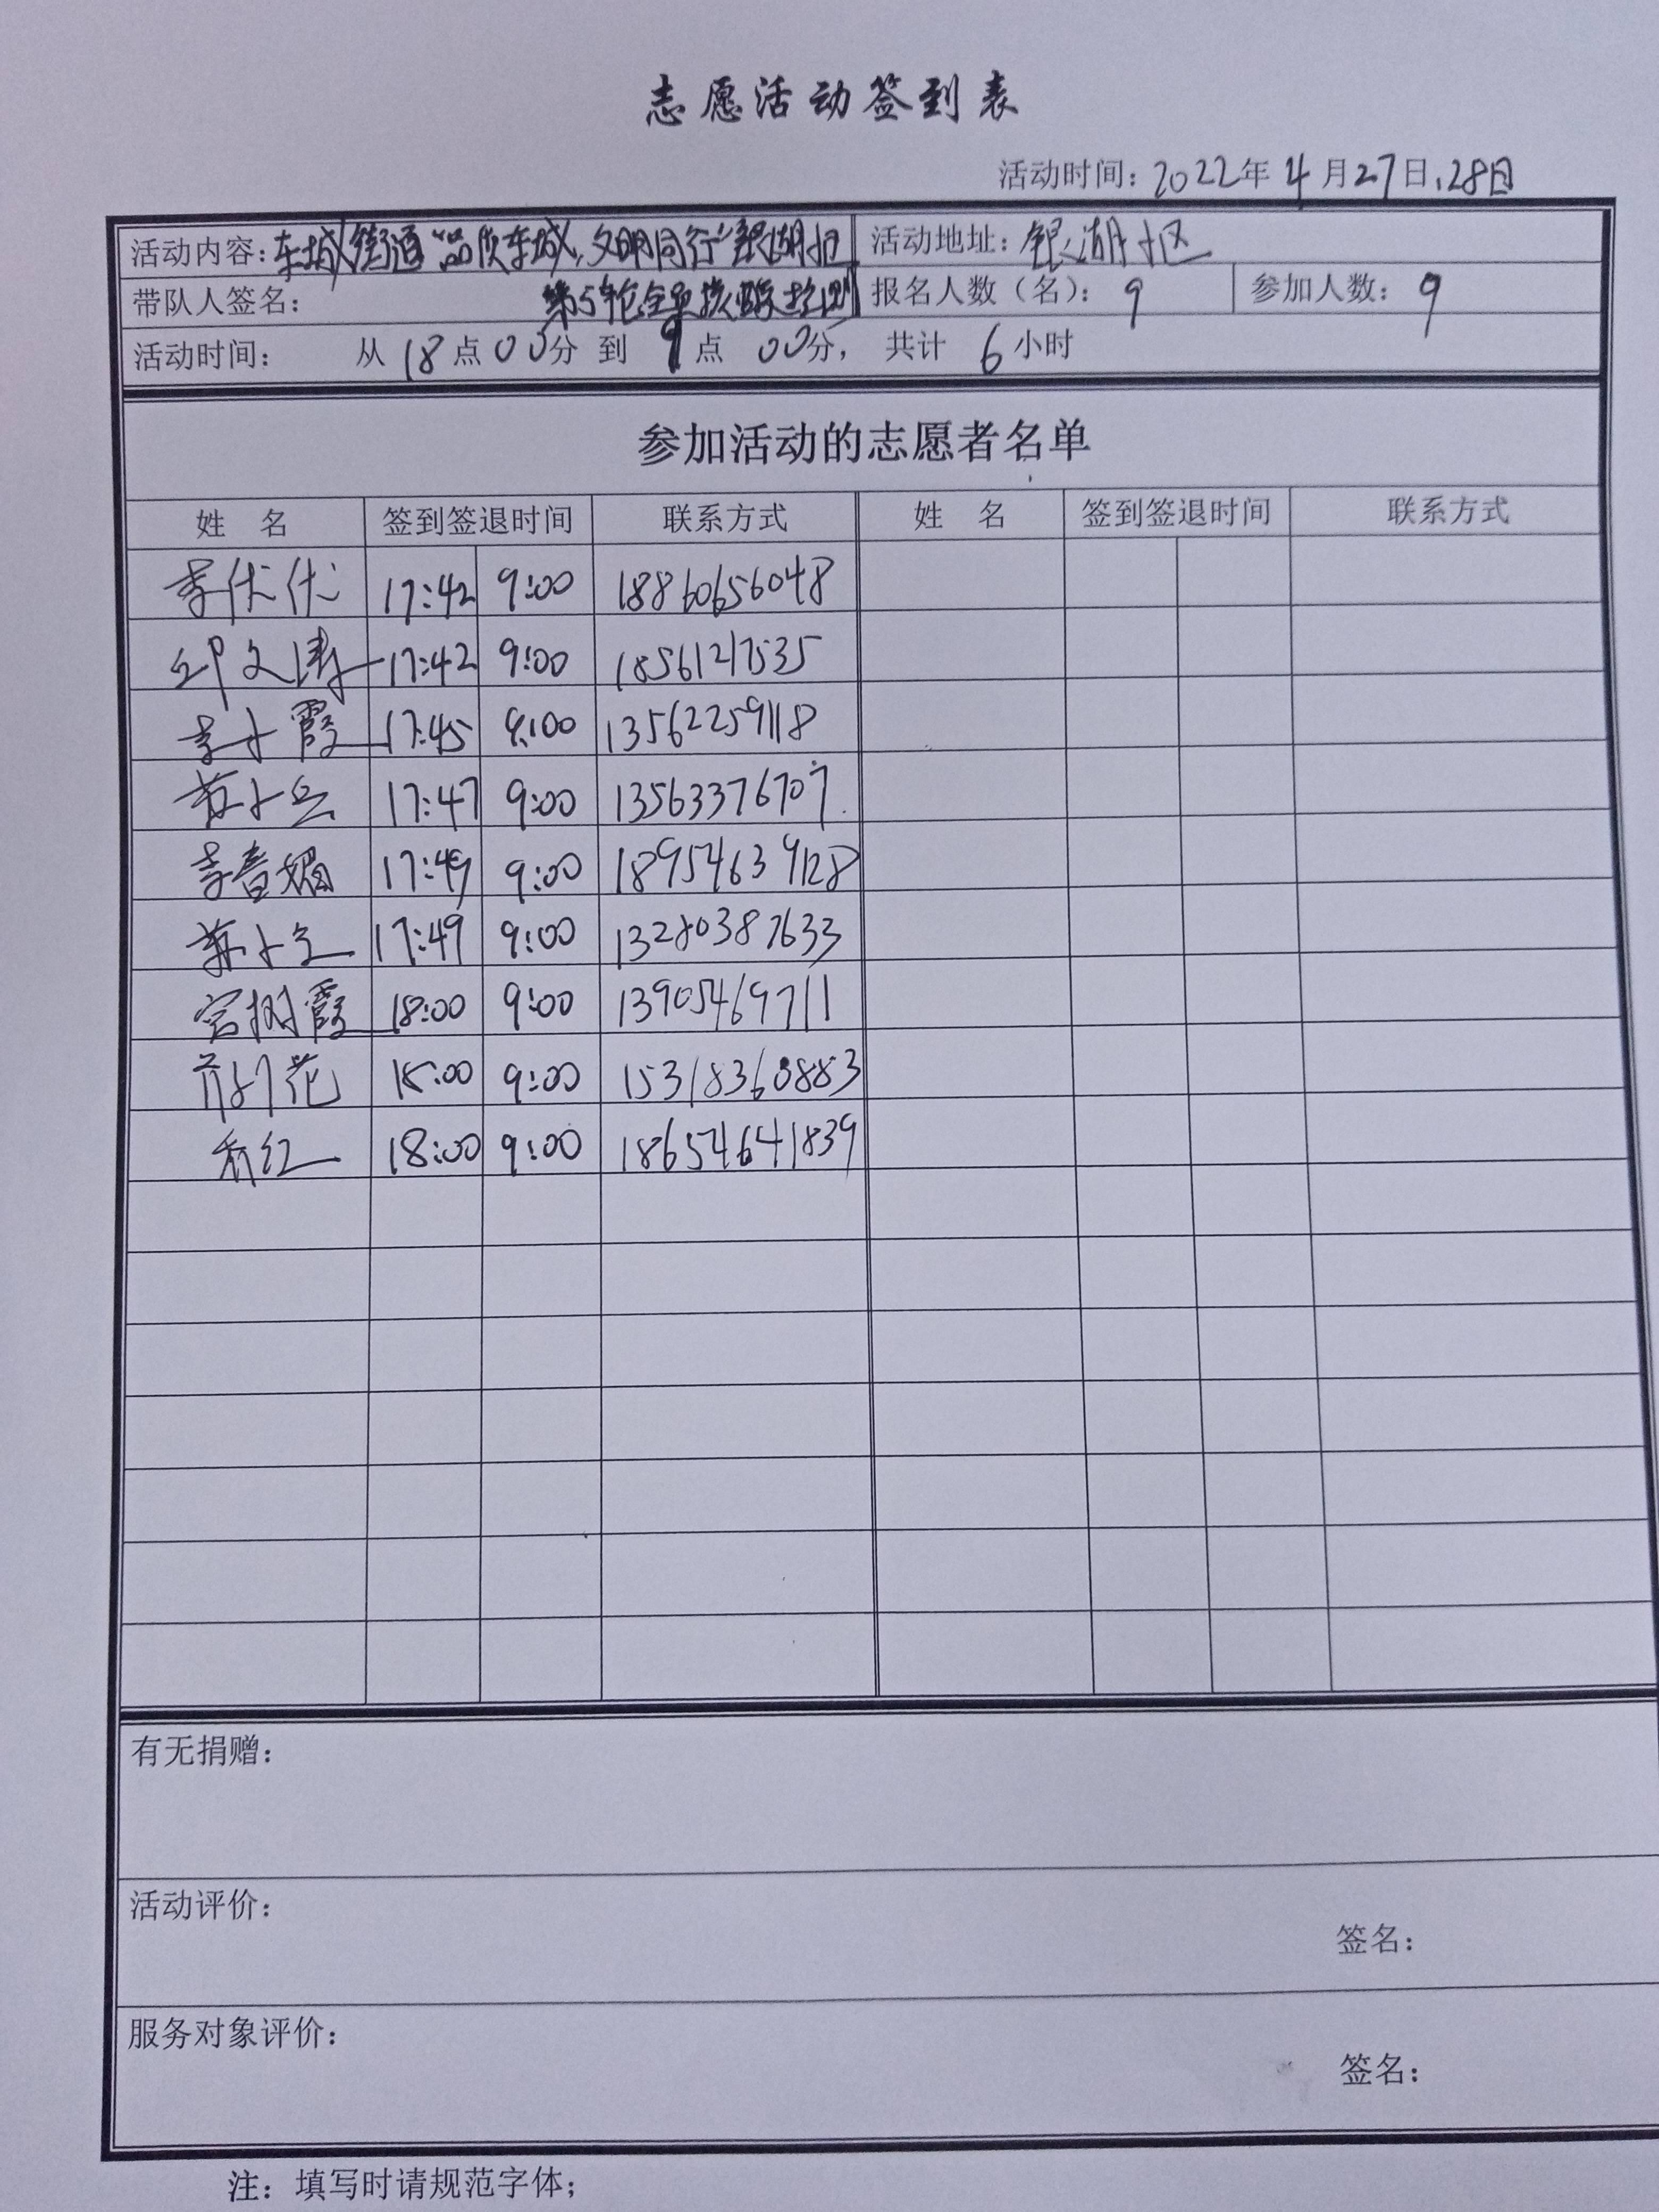 志愿活动签到表
活动时间：2022年4月27日、28日
活动内容：东城街道"品质东城，文明同行"银湖社区 活动地址：银湖社区
带队人签名： 第5轮全员核酸检测 报名人数（名）：9 参加人数：9
活动时间： 从18点00分到9点00分， 共计6小时
参加活动的志愿者名单
姓 名 签到签退时间 联系方式 姓 名 签到签退时间 联系方式
李伏伏 17:42 9:00 18860656048
邱文涛 17:42 9:00 18561217535
李小霞 17:45 9:00 13562259118
苏小兵 17:47 9:00 13563376707
李春娟 17:49 9:00 18954639128
苏小 17:49 9:00 13280387633
宫树霞 18:00 9:00 13905469711
花 18:00 9:00 15318360883
乔红 18:00 9:00 18654641839
有无捐赠：
活动评价：
签名：
服务对象评价：
签名：
注：填写时请规范字体；